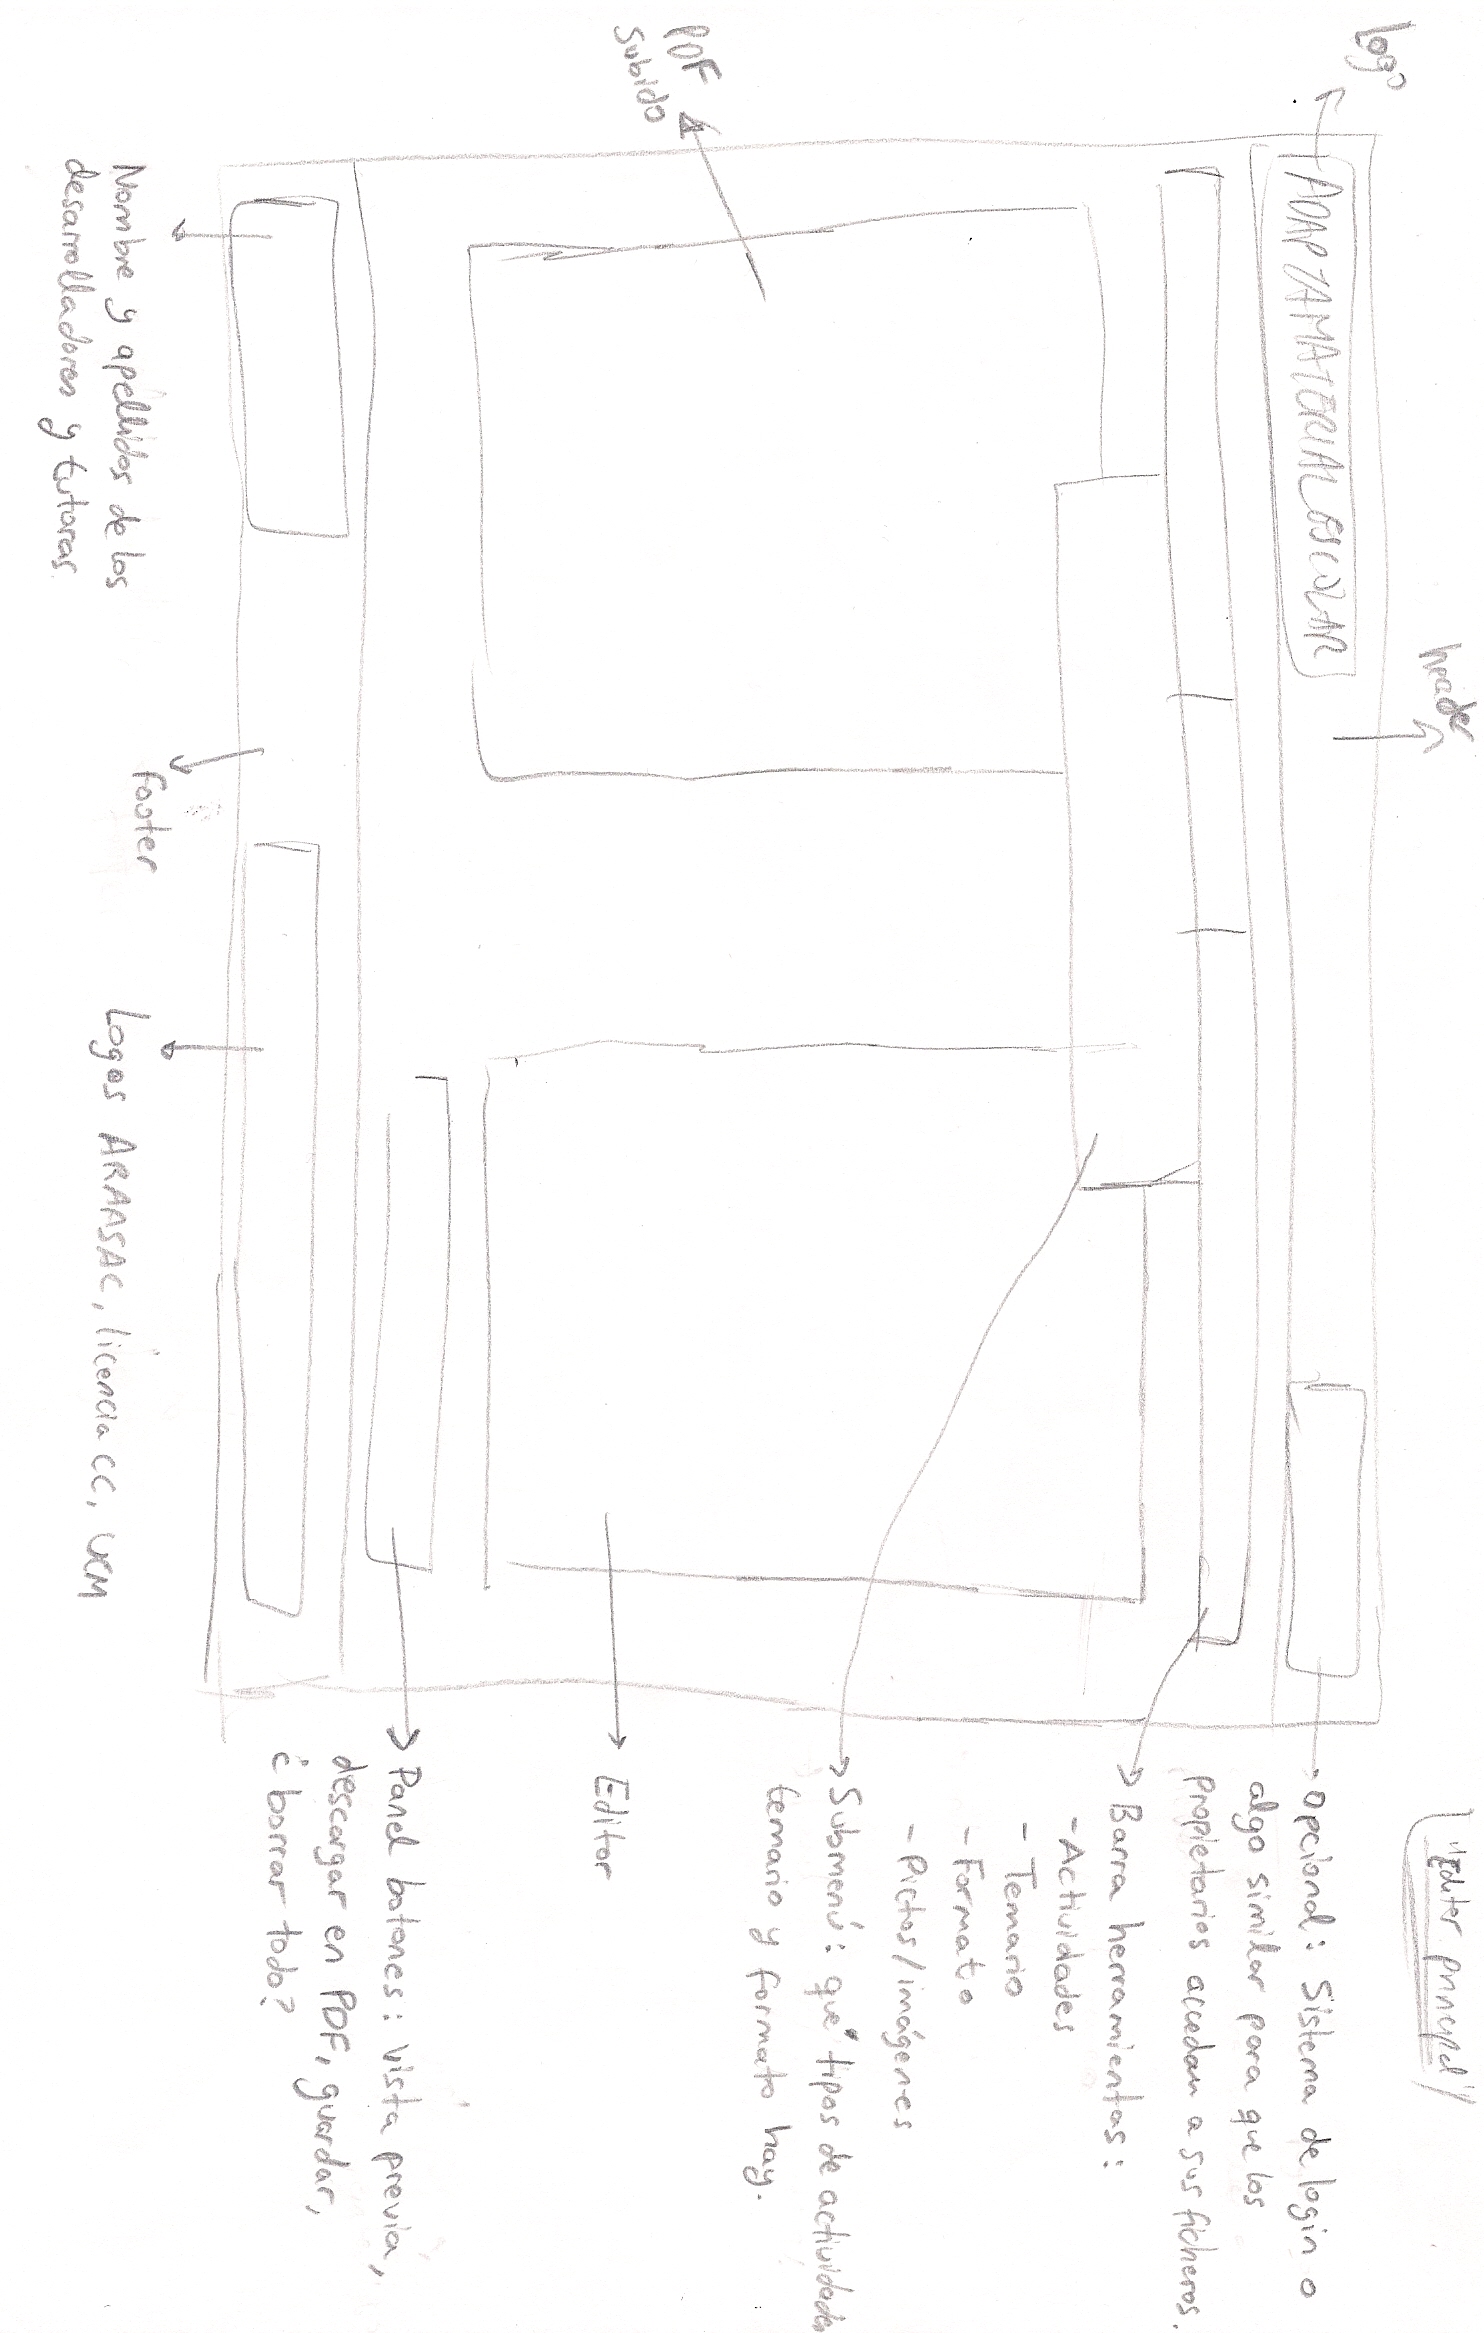 header
"Editor principal"
Logo
ADAPTAMATERIALESCOLAR
Opcional: Sistema de login o
algo similar para que los
propietarios accedan a sus ficheros.
Barra herramientas:
- Actividades
- Temario
- Formato
- Pictos/imágenes
Submenú: qué tipos de actividades
temario y formato hay.
PDF
Subido
Editor
Panel botones: vista previa,
descargar en PDF, guardar,
¿borrar todo?
Nombre y apellidos de los
desarrolladores y tutoras.
footer
Logos ARAASAC, licencia CC, UCM